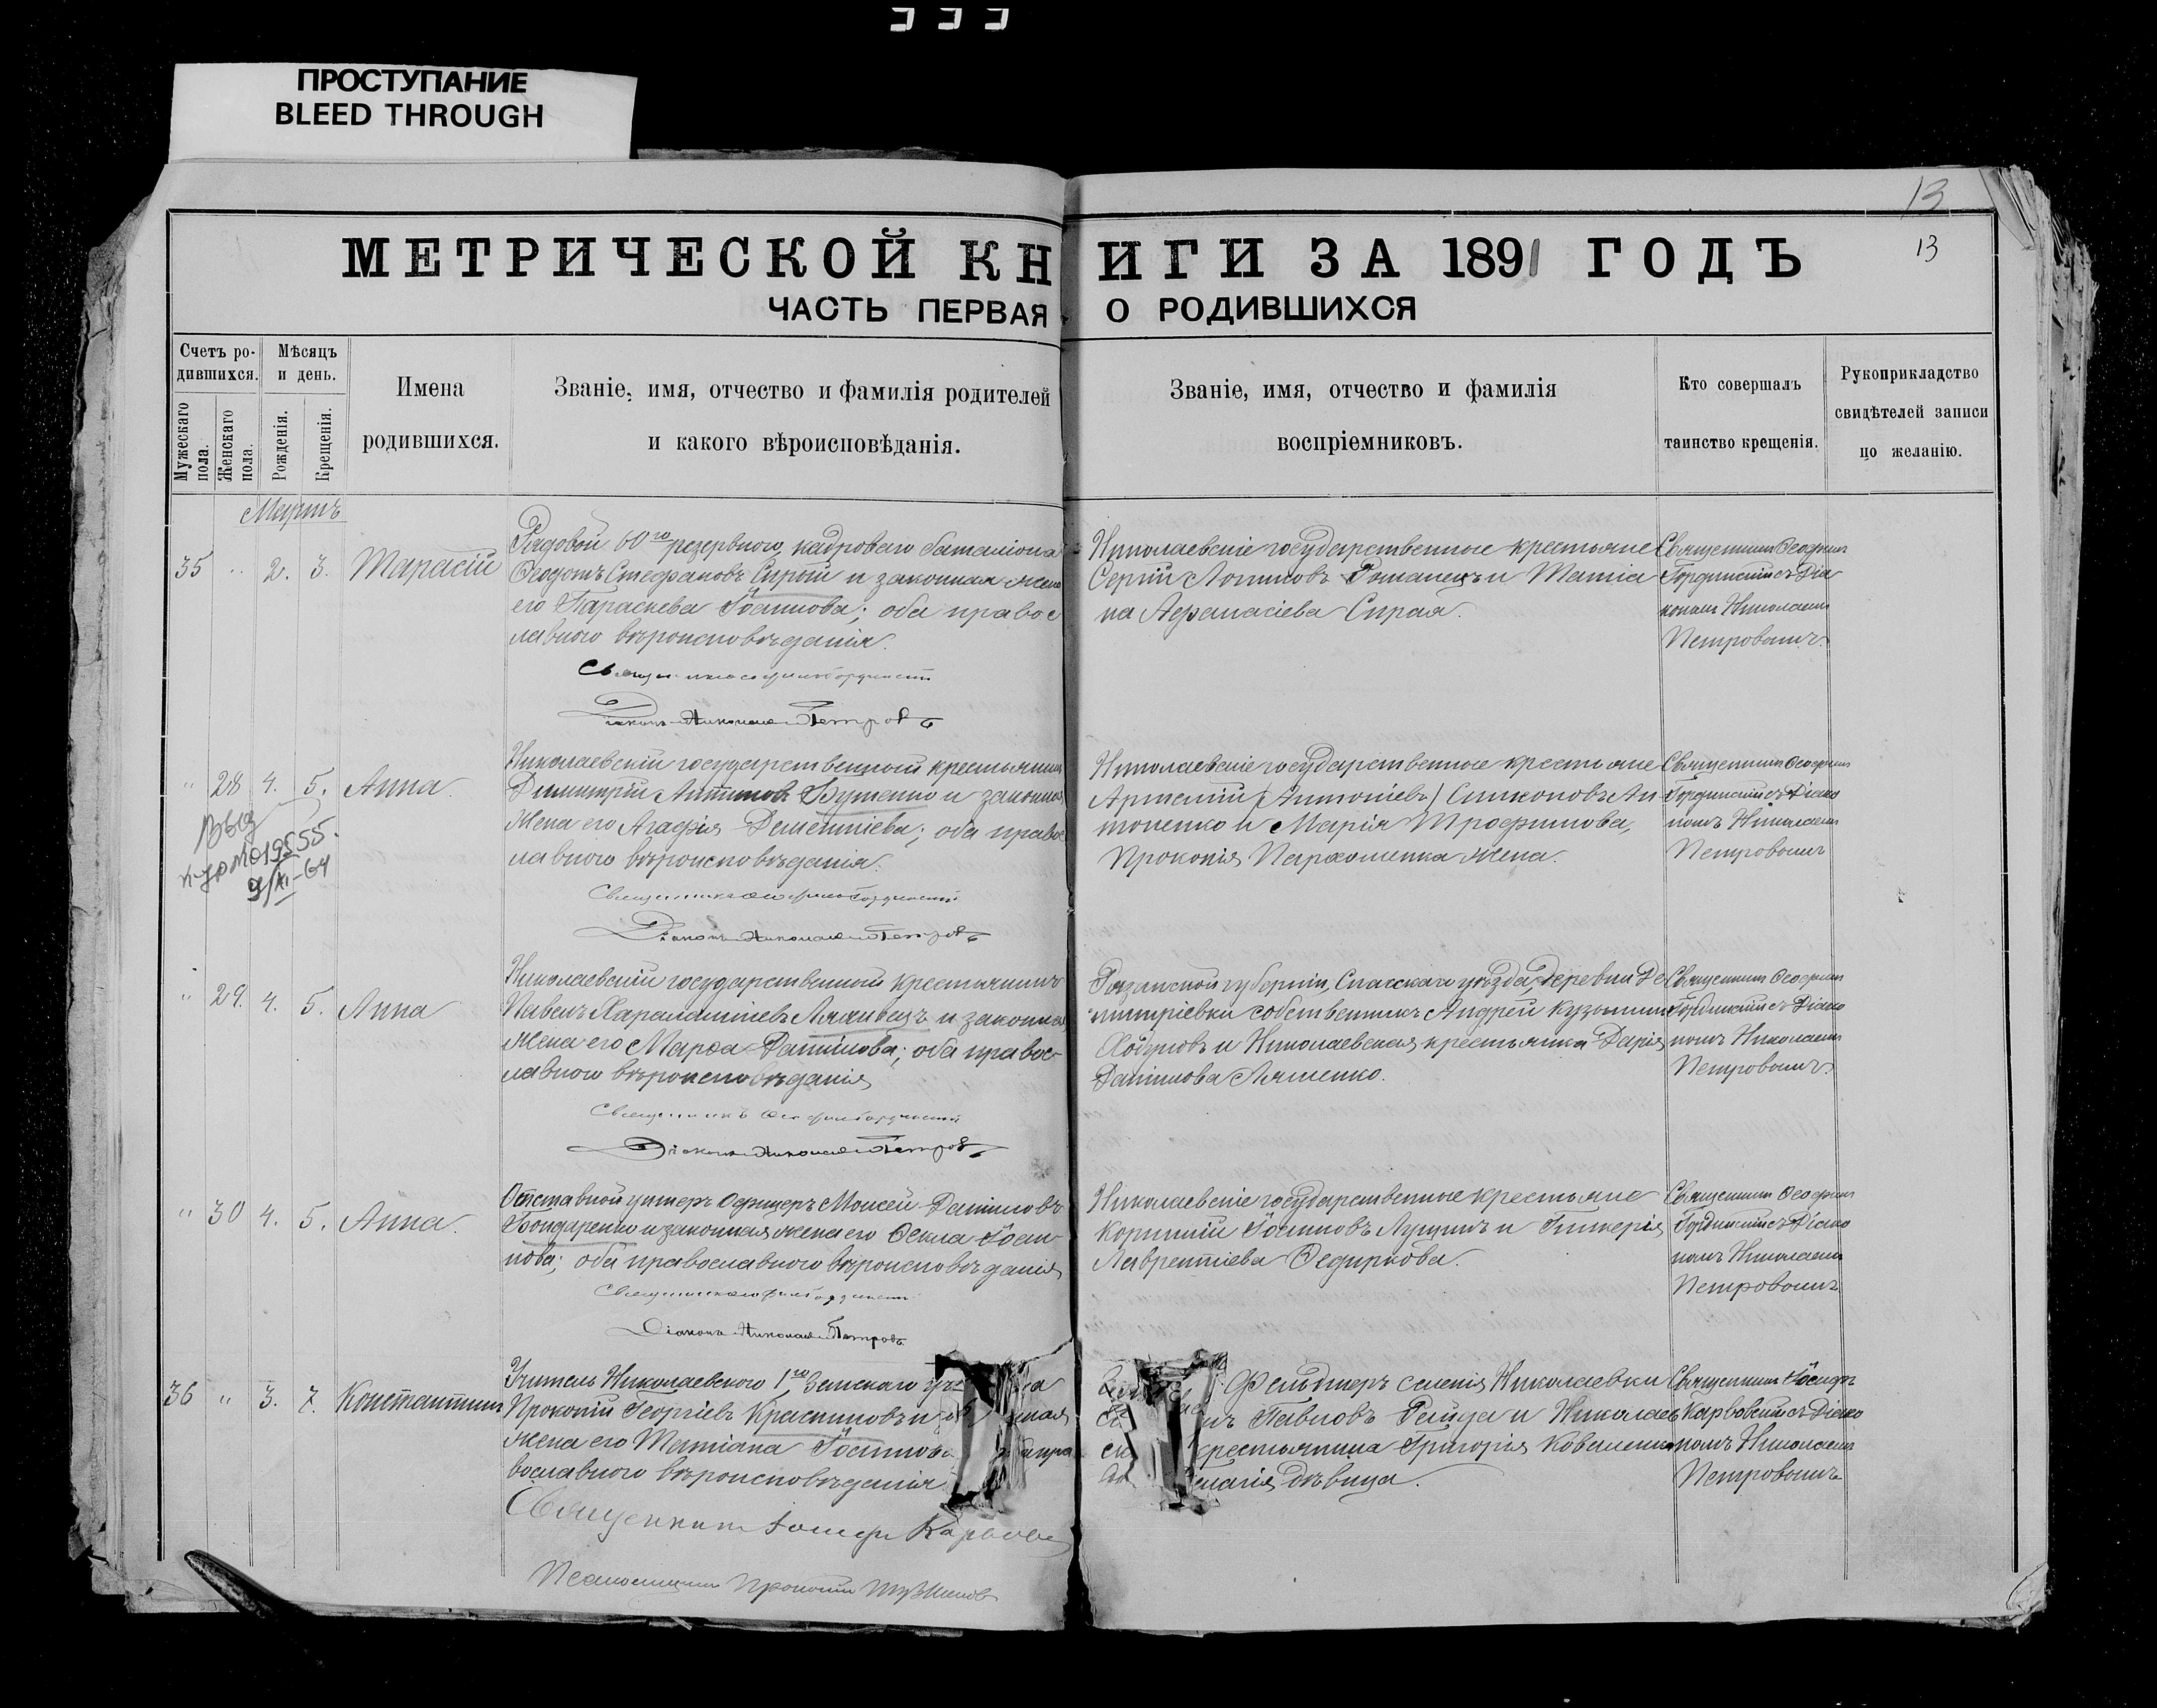 ПРОСТУПАНИЕ
BLEED THROUGH
13
МЕТРИЧЕСКОЙ КНИГИ ЗА 1891 ГОДЪ
13
ЧАСТЬ ПЕРВАЯ О РОДИВШИХСЯ
Счетъ ро-
дившихся.
Мужескаго
пола.
Женскаго
пола.
Мѣсяцъ
и день.
Рожденія.
Крещенія.
Имена
родившихся.
Званіе, имя, отчество и фамилія родителей
и какого вѣроисповѣданія.
Званіе, имя, отчество и фамилія
воспріемниковъ.
Кто совершалъ
таинство крещенія.
Рукоприкладство
свидѣтелей записи
по желанію.
Мартъ
35 " 2. 3. Тарасій
Рядовой 60го резервнаго кадроваго баталіона
Ѳеодотъ Стефановъ Сирый и законная жена
его Параскева Іоаннова; оба правос
лавного вѣроисповѣданія.
Діаконъ Николай Петровъ
Николаевскіе государственные крестьяне
Сергій Романецъ и Татіа
на Аѳанасіева Сирая.
Священникъ Ѳеофилъ
Гординскій съ Діа
кономъ Николаемъ
Петровымъ.
" 28 4. 5. Анна.
9/XI-64
Николаевскій государственный крестьянинъ
Димитрій Бутенко и законная
жена его Агафія Дементіева; оба правос
лавного вѣроисповѣданія.
Діаконъ Николай Петровъ
Николаевскіе государственные крестьяне
Артемій (Антоніевъ) Симоновъ Ан
тоненко и Марія Трофимова,
Прокопія Пархоменка жена.
Священникъ Ѳеофилъ
Гординскій съ Діако
номъ Николаемъ
Петровымъ
" 29. 4. 5. Анна
Николаевскій государственный крестьянинъ
Павелъ Харалампіевъ и законная
жена его Марѳа Даніилова; оба правос
лавного вѣроисповѣданія
Священникъ Ѳеофилъ Гординскій
Діаконъ Николай Петровъ
губерніи, Спасскаго уѣзда, деревни Де
митріевки собственникъ Андрей Кузьминъ
Ходуновъ и Николаевская крестьянка Дарія
Даніилова Ляшенко.
Священникъ Ѳеофилъ
Гординскій съ Діако
номъ Николаемъ
Петровымъ.
" 30 4. 5. Анна.
Отставной унтеръ Офицеръ Моисей Даніиловъ
Бондаренко и законная жена его Ѳекла Іоан
нова; оба православного вѣроисповѣданія
Діаконъ Николай Петровъ
Николаевскіе государственные крестьяне
Корнилій Іоанновъ Лущикъ и Гликерія
Лаврентіева Ѳедиркова.
Священникъ Ѳеофилъ
Гординскій съ Діако
номъ Николаемъ
Петровымъ
36 " 3. 7. Константинъ
Учитель Николаевского 1го Земскаго
Прокопій Георгіевъ Красниковъ и
жена его Татіана
вославного вѣроисповѣданія
Священникъ Іосифъ
Псаломщикъ Прокопій
Фельдшеръ селенія Николаевки
Павловъ и Николаев
крестьянина Григорія Коваленка
дѣвица.
Священникъ Іосифъ
Карвовскій съ Діако
номъ Николаемъ
Петровымъ